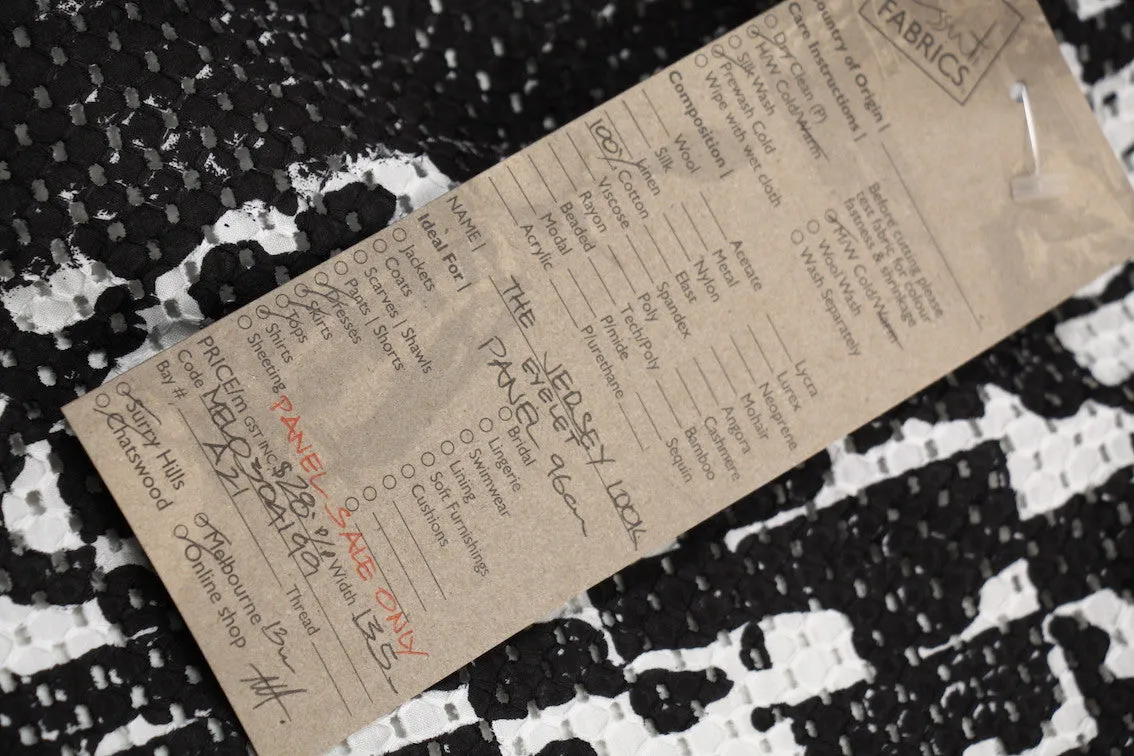 FABRICS
Country of Origin |
Care Instructions |
Dry Clean (P)
H/W Cold/Warm
Silk Wash
Prewash Cold
Wipe with wet cloth
Before cutting please
test fabric for colour
fastness & shrinkage
H/W Cold/Warm
Wool Wash
Wash Separately
Composition |
Wool
Silk
Linen
100% Cotton
Viscose
Rayon
Beaded
Modal
Acrylic
Acetate
Metal
Nylon
Elast
Spandex
Poly
Tech/Poly
P/mide
P/urethane
Lycra
Lurex
Neoprene
Mohair
Angora
Cashmere
Bamboo
Sequin
NAME | THE JERSEY LOOK
EYELET
PANEL 96cm
Ideal For |
Jackets
Coats
Scarves | Shawls
Pants | Shorts
Dresses
Skirts
Tops
Shirts
Sheeting
Bridal
Lingerie
Swimwear
Lining
Soft Furnishings
Cushions
PANEL SALE ONLY
PRICE/m GST INC. $28 Width 135
Code MELR304199
Bay # A21 Thread
Surry Hills
Chatswood
Melbourne 13m
Online shop